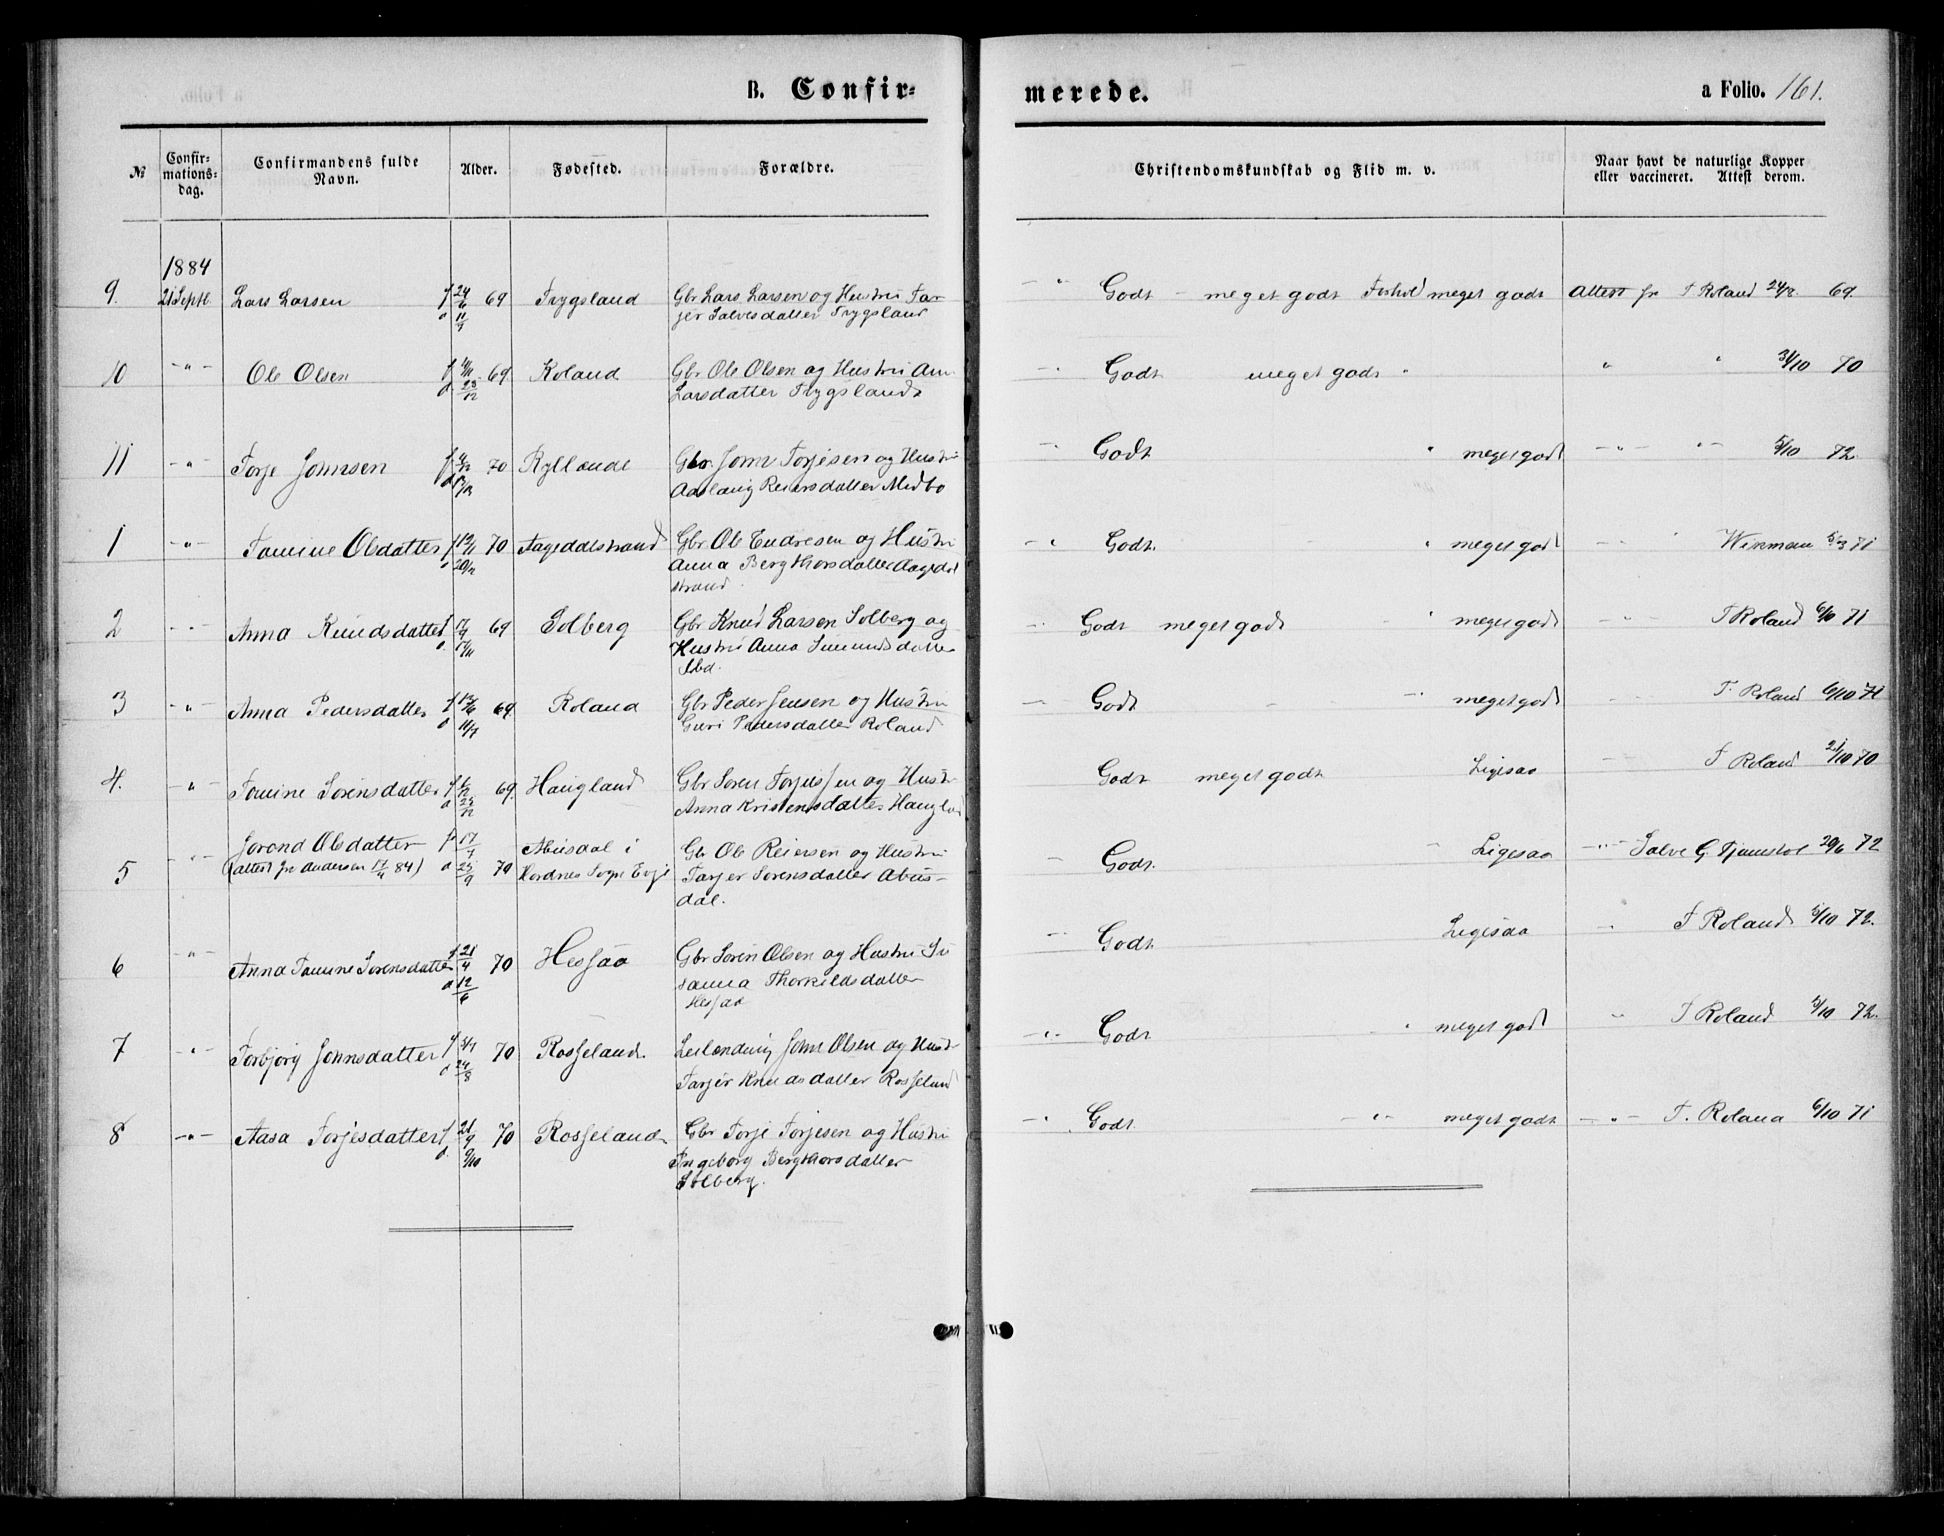 B. Confir-
merede.
a Folio. 161.
№
Confir-
mations-
dag.
Confirmandens fulde
Navn.
Alder.
Fødested.
Forældre.
Christendomskundskab og Flid m. v.
Naar havt de naturlige Kopper
eller vaccineret. Attest derom.
1884
9. 21 Septb. Lars Larsen f 24/6 69 Trygsland Gbr Lars Larsen og Hustru Tar-
d 11/7 jer Salvesdatter Trygsland
-"- Godt - meget godt Forhold meget godt Attest fr T Roland 24/8 69.
10 -"- Ole Olsen 69 Roland Gbr Ole Olsen og Hustru An
Larsdatter Trygsland
Godt meget godt " " " 31/10 70
11 -"- Torje Johnsen 70 Rylland Gbr John Torjesen og Hustru
Aaslaug Reiersdatter Medbo
Godt " meget godt -"- 5/10 72
1 -"- Tomine Olsdatter 70 Aageddestrand Gbr Ole Endresen og Hustru
Anna Bergthorsdatter Aagedde
strand.
Godt. " meget godt 71
2 -"- Anna Knudsdatter 69 Solberg Gbr Knud Larsen Solberg og
Hustru Anna Simundsdatter
ibd.
Godt meget godt " meget godt T Roland 6/10 71
3 -"- Anna Pedersdatter f 69 Roland Gbr Peder Jensen og Hustru
d 11/7 Guri Pedersdatter Roland
Godt meget godt T. Roland 6/10 71
4. " Tomine Sørensdatter 69. Haugland Gbr Søren Torjussen og Hustr
Anna Kristensdatter Haugland
Godt meget godt Ligesaa T Roland 21/10 70
5 -"- Jorond Olsdatter f 17/7 Abusdal i Gbr Ole Reiersen og Hustru
(attest fr Andersen 17/4 84) d 25/9 70 Hordnes Sogn Evje Tarjer Sørensdatter Abus-
dal.
Godt. Ligesaa -"- Salve G. 29/6 72
6 " Anna Tomine Sørensdatter f 21/4 70 Hessaa Gbr Søren Olsen og Hustru Su
d 12/6 sanna Thorkildsdatter
Hessaa
Godt Ligesaa T Roland 5/10 72.
7 -"- Torbjørg Johnsdatter f 70 Rosseland. Leilænding John Olsen og Hustr
d 24/8 Tarjer Knudsdatter Rosseland
-"- Godt " meget godt " T Roland 5/10 72.
8 -"- Aasa Torjesdatter f 21/9 70 Rosseland Gbr Torje Torjesen og Hustru
d. 9/10 Ingeborg Bergthorsdatter
Solberg.
-"- Godt. -"- meget godt -"- T. Roland 6/10 71